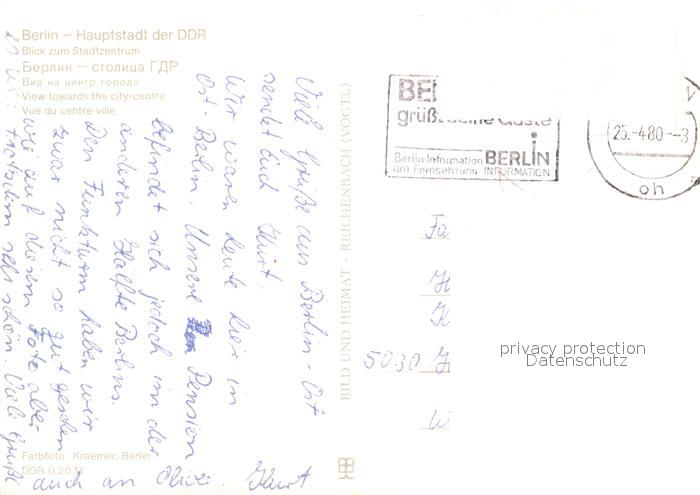 Berlin – Hauptstadt der DDR
Blick zum Stadtzentrum
Берлин – столица ГДР
Вид на центр города
View towards the city-centre
Vue du centre-ville
Viele Grüße aus Berlin-Ost
sendet Euch Kurt.
Wir waren heute hier in
Ost-Berlin. Unsere Pension
befindet sich jedoch in der
anderen Hälfte Berlins.
Den Funkturm haben wir
zwar nicht so gut gesehen
wie auf diesem Foto aber
trotzdem sehr schön. Viele Grüße
auch an Kurt
Farbfoto: Kraemer, Berlin
DDR 0,20 M
BILD UND HEIMAT · REICHENBACH (VOGTL)
BE
grüßt seine Gäste
Berlin-Information
am Fernsehturm
BERLIN
INFORMATION
25.-4.80--3
oh
Fa
5030
privacy protection
Datenschutz